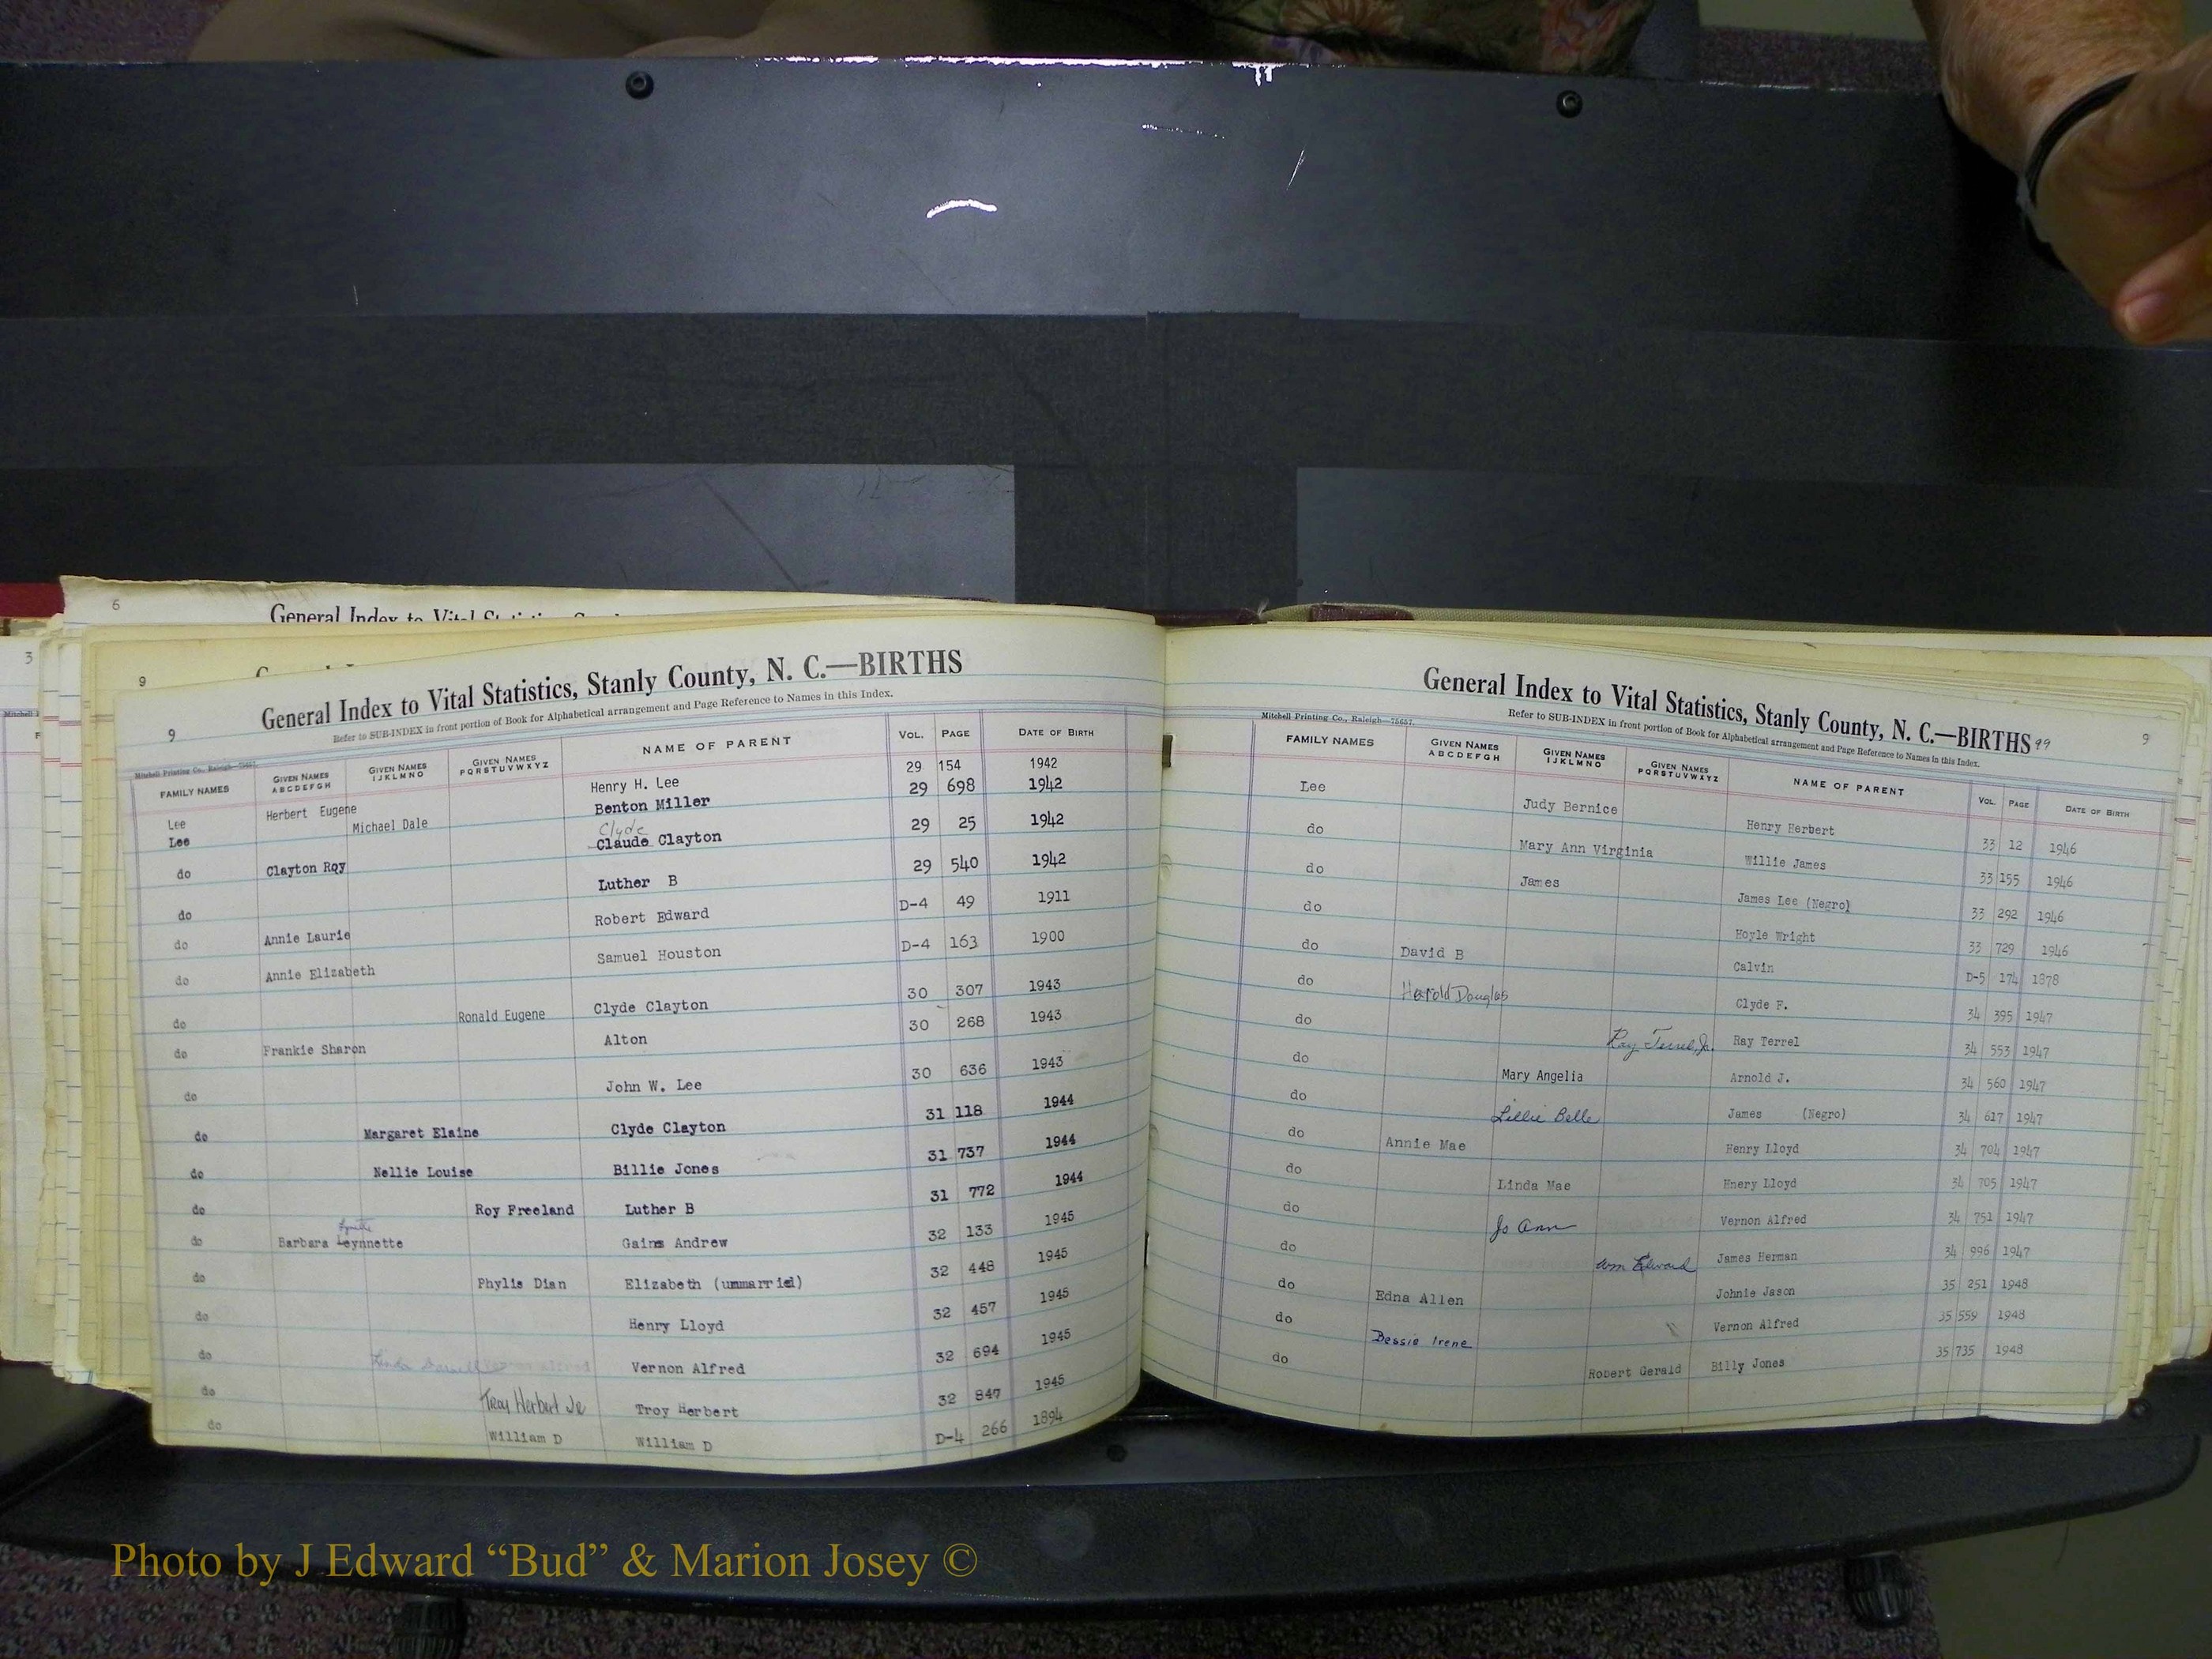 6
General Index to Vital
3
9
9
General Index to Vital Statistics, Stanly County, N. C.—BIRTHS
Refer to SUB-INDEX in front portion of Book for Alphabetical arrangement and Page Reference to Names in this Index.
Mitchell Printing Co., Raleigh—75657.
FAMILY NAMES GIVEN NAMES ABCDEFGH GIVEN NAMES IJKLMNO GIVEN NAMES PQRSTUVWXYZ NAME OF PARENT VOL. PAGE DATE OF BIRTH
Lee Herbert Eugene Henry H. Lee 29 154 1942
Lee Michael Dale Benton Miller 29 698 1942
Clyde
do Clayton Roy Claude Clayton 29 25 1942
do Luther B 29 540 1942
do Annie Laurie Robert Edward D-4 49 1911
do Annie Elizabeth Samuel Houston D-4 163 1900
do Ronald Eugene Clyde Clayton 30 307 1943
do Frankie Sharon Alton 30 268 1943
do John W. Lee 30 636 1943
do Margaret Elaine Clyde Clayton 31 118 1944
do Nellie Louise Billie Jones 31 737 1944
do Roy Freeland Luther B 31 772 1944
do Barbara Leynnette Gains Andrew 32 133 1945
do Phylis Dian Elizabeth (unmarried) 32 448 1945
do Henry Lloyd 32 457 1945
do Linda Vernon Alfred 32 694 1945
do Troy Herbert Jr Troy Herbert 32 847 1945
do William D William D D-4 266 1894
General Index to Vital Statistics, Stanly County, N. C.—BIRTHS 99
9
Refer to SUB-INDEX in front portion of Book for Alphabetical arrangement and Page Reference to Names in this Index.
Mitchell Printing Co., Raleigh—75657.
FAMILY NAMES GIVEN NAMES ABCDEFGH GIVEN NAMES IJKLMNO GIVEN NAMES PQRSTUVWXYZ NAME OF PARENT VOL. PAGE DATE OF BIRTH
Lee Judy Bernice Henry Herbert 33 12 1946
do Mary Ann Virginia Willie James 33 155 1946
do James James Lee (Negro) 33 292 1946
do Hoyle Wright 33 729 1946
do David B Calvin D-5 174 1878
do Harold Douglas Clyde F. 34 395 1947
do Ray Terrel, Jr. Ray Terrel 34 553 1947
do Mary Angelia Arnold J. 34 560 1947
do Lillie Belle James (Negro) 34 617 1947
do Annie Mae Henry Lloyd 34 704 1947
do Linda Mae Hnery Lloyd 34 705 1947
do Jo Ann Vernon Alfred 34 751 1947
do Wm Edward James Herman 34 996 1947
do Edna Allen Johnie Jason 35 251 1948
do Bessie Irene Vernon Alfred 35 559 1948
do Robert Gerald Billy Jones 35 735 1948
Photo by J Edward “Bud” & Marion Josey ©